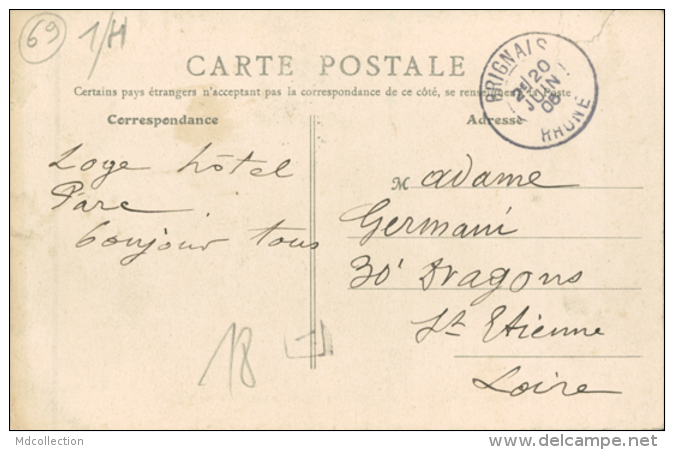 69
1/H
CARTE POSTALE
Certains pays étrangers n'acceptant pas la correspondance de ce côté, se renseigner à la Poste
Correspondance
Adresse
BRIGNAIS
20
JUIN
06
RHONE
Loge hôtel
Parc
bonjour tous
Madame
Germani
30' Dragons
St Etienne
Loire
18
Mdcollection
www.delcampe.net